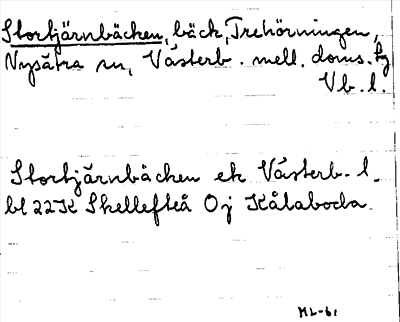 Stortjärnbäcken, bäck, Trehörningen,
Nysätra sn, Västerb. mell. doms. tg
Vb. l.
Stortjärnbäcken ek Västerb. l.
bl 22K Skellefteå Oj Kålaboda
ML-61